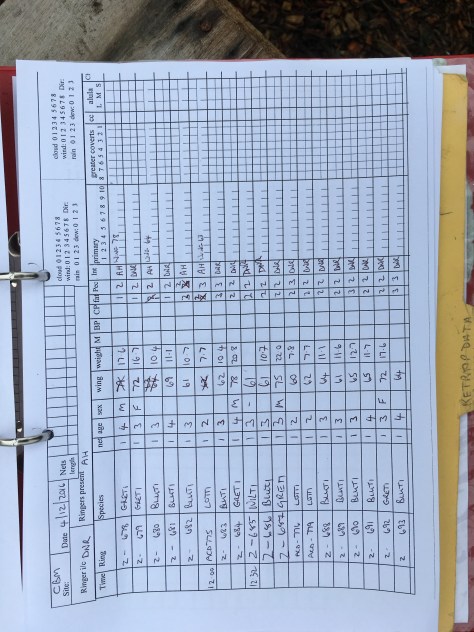 CBM
Site: Date 4/12/2016 Nets length
Ringer i/c DWR Ringers present AH
cloud 0 1 2 3 4 5 6 7 8
wind: 0 1 2 3 4 5 6 7 8 Dir:
rain 0 1 2 3 dew: 0 1 2 3
cloud 0 1 2 3 4 5 6 7 8
wind: 0 1 2 3 4 5 6 7 8 Dir:
rain 0 1 2 3 dew: 0 1 2 3
Time Ring Species net age sex wing weight M BP CP fat Pec Int primary greater coverts cc alula Ct
1 2 3 4 5 6 7 8 9 10 8 7 6 5 4 3 2 1 L M S
Z - 678 GRETI 1 4 M 17.6 1 2 AH
Z - 679 GRETI 1 3 F 72 16.7 1 2 DWR
Z - 680 BLUTI 1 3 10.4 2 AH
Z - 681 BLUTI 1 4 69 11.1 1 2 DWR
Z - 682 BLUTI 1 3 61 10.7 AH
12:00 AKD775 LOTTI 1 2 7.7 3 AH
Z - 683 BLUTI 1 3 62 10.4 3 3 DWR
Z - 684 GRETI 1 4 M 78 20.8 2 2 DWR
12:32 Z - 685 WILTI 1 3 - 61 2 2 DWR
Z - 686 BLUTI 1 3 61 10.7 2 2 DWR
Z - 687 GRETI 1 3 M 75 22.0 2 2 DWR
AKD - 776 LOTTI 1 2 60 7.8 2 3 DWR
AKD - 779 LOTTI 1 2 62 7.7 2 2 DWR
Z - 688 BLUTI 1 3 64 11.1 2 2 DWR
Z - 689 BLUTI 1 3 61 11.6 2 2 DWR
Z - 690 BLUTI 1 3 65 12.7 3 2 DWR
Z - 691 BLUTI 1 4 65 11.7 2 2 DWR
Z - 692 GRETI 1 3 F 72 17.6 3 2 DWR
Z - 693 BLUTI 1 4 64 3 3 DWR
RETRAP DATA